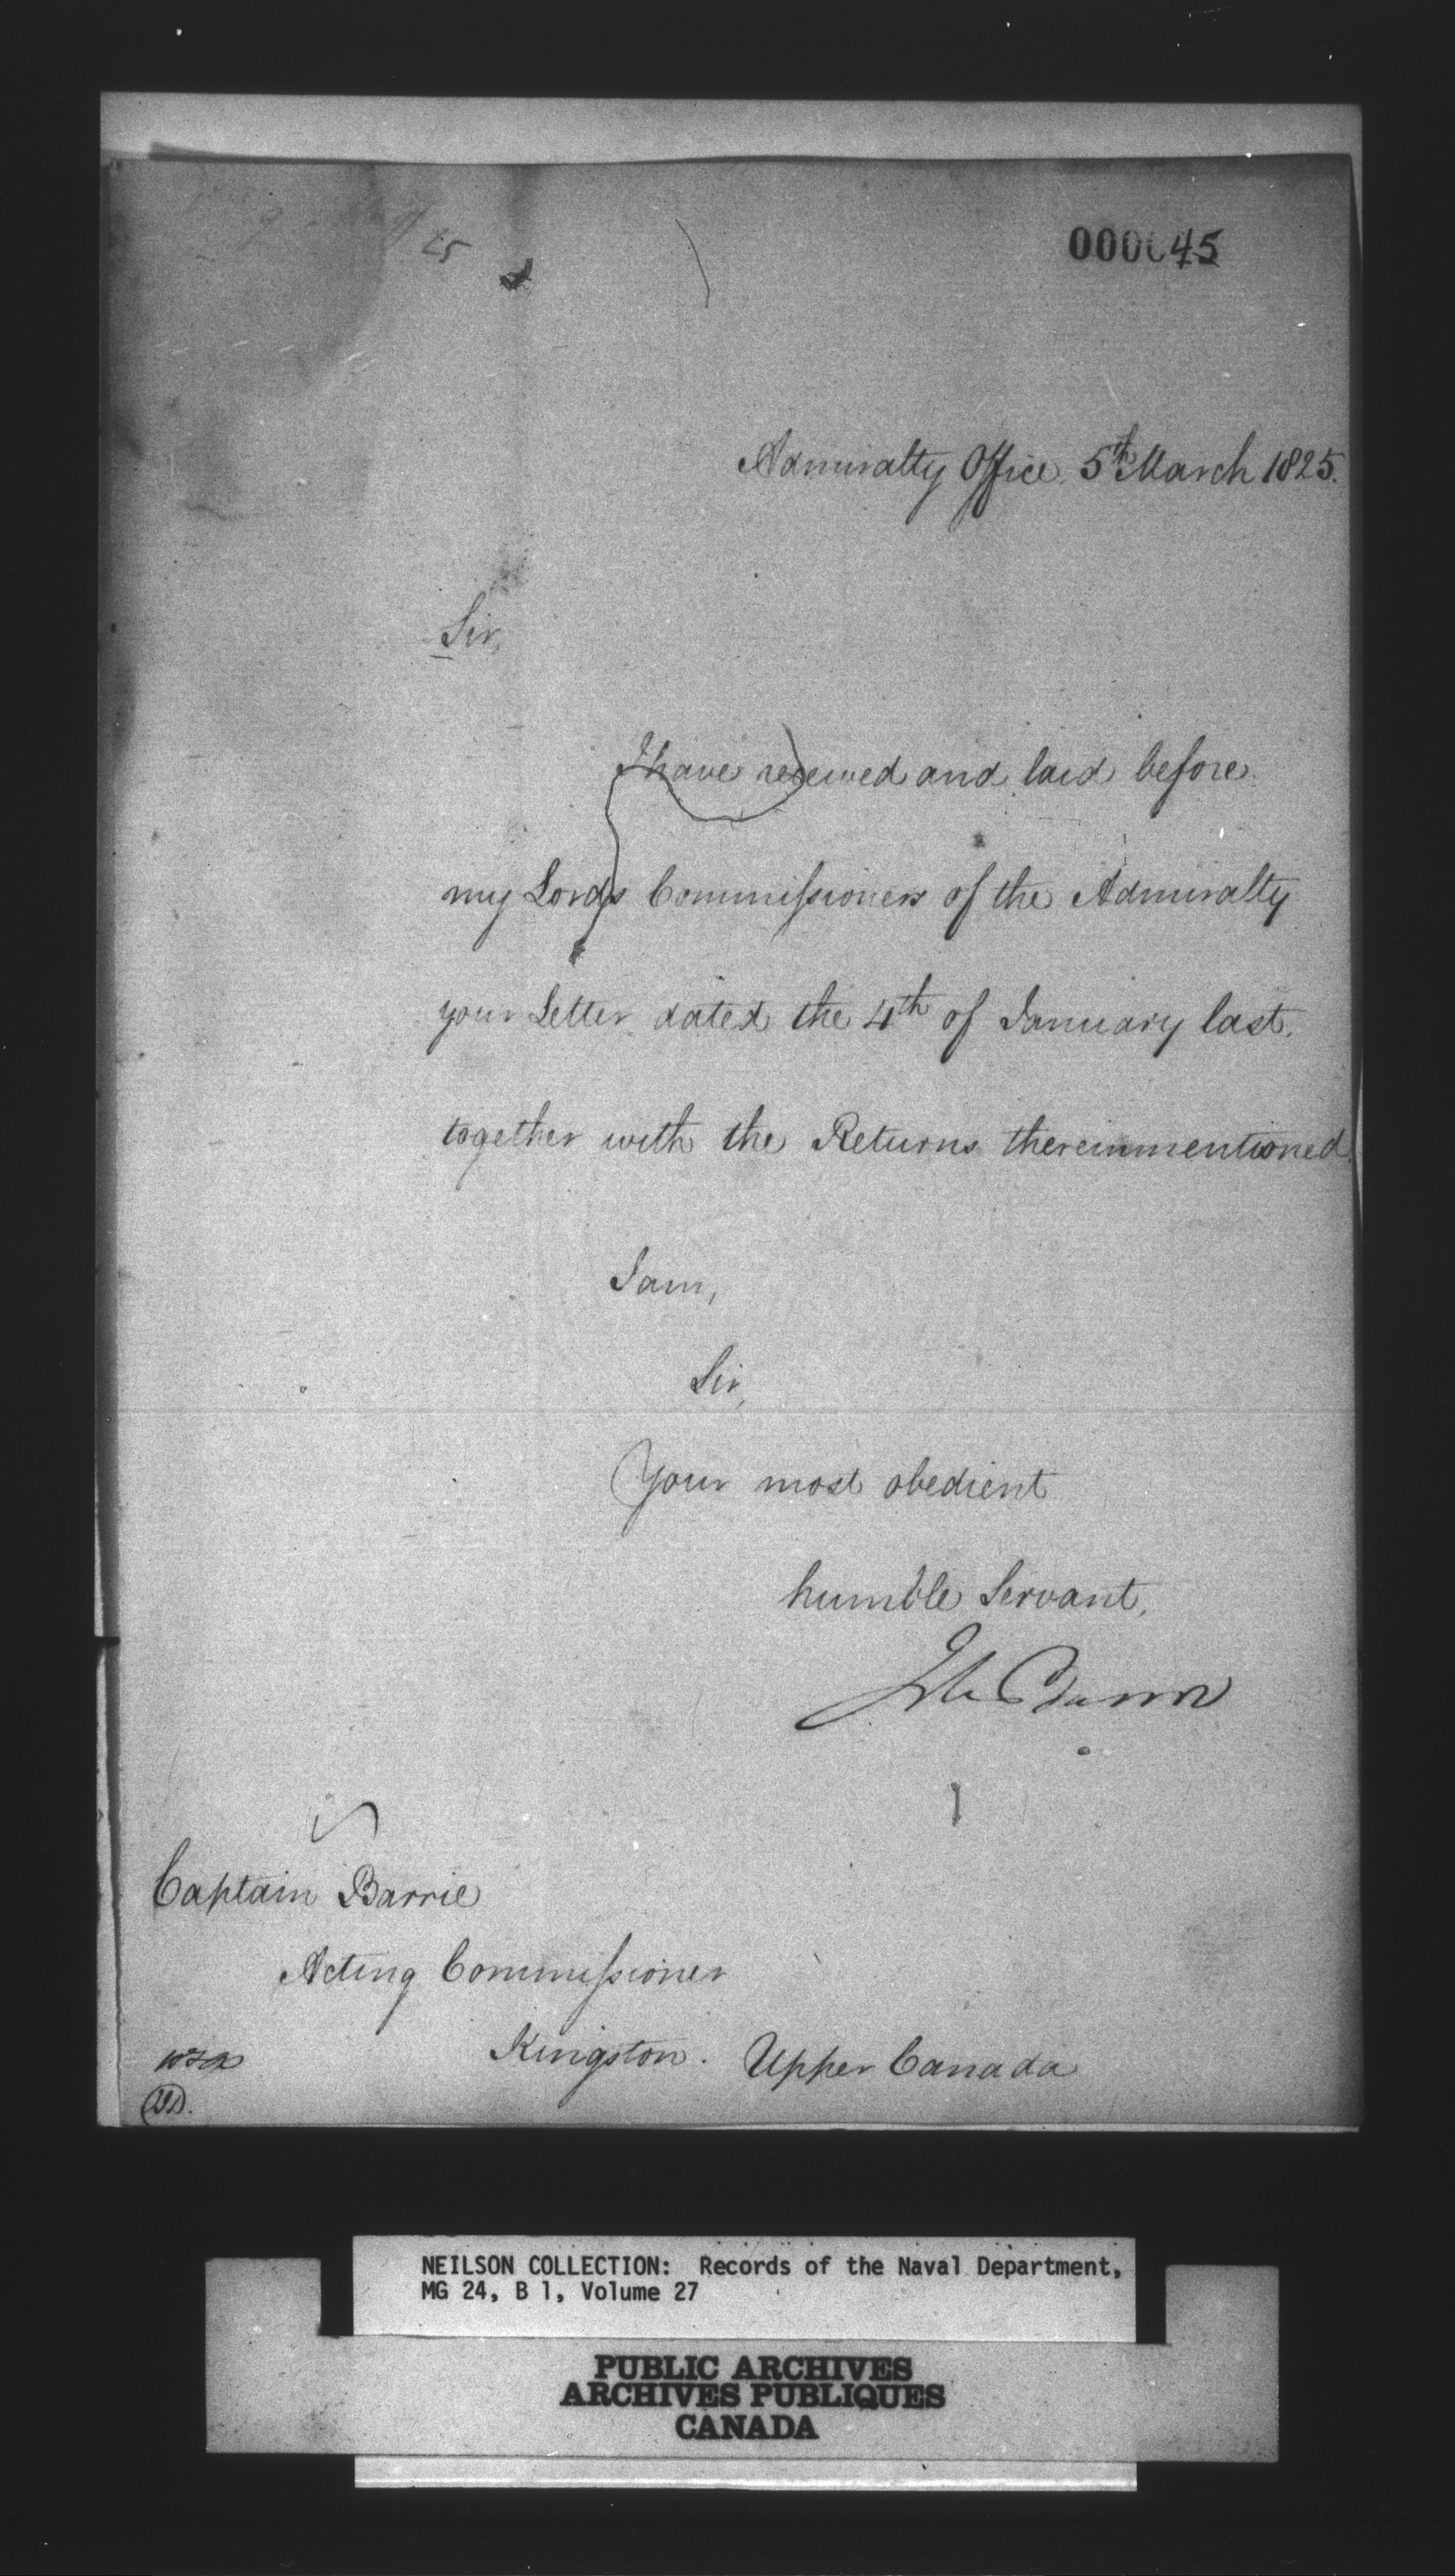 25
000045
Admiralty Office 5th March 1825.
Sir,
I have received and laid before
my Lords Commissioners of the Admiralty
your Letter dated the 4th of January last,
together with the Returns therein mentioned.
I am,
Sir,
Your most obedient
humble Servant,
Captain Barrie
Acting Commissioner
Kingston. Upper Canada
NEILSON COLLECTION: Records of the Naval Department,
MG 24, B 1, Volume 27
PUBLIC ARCHIVES
ARCHIVES PUBLIQUES
CANADA